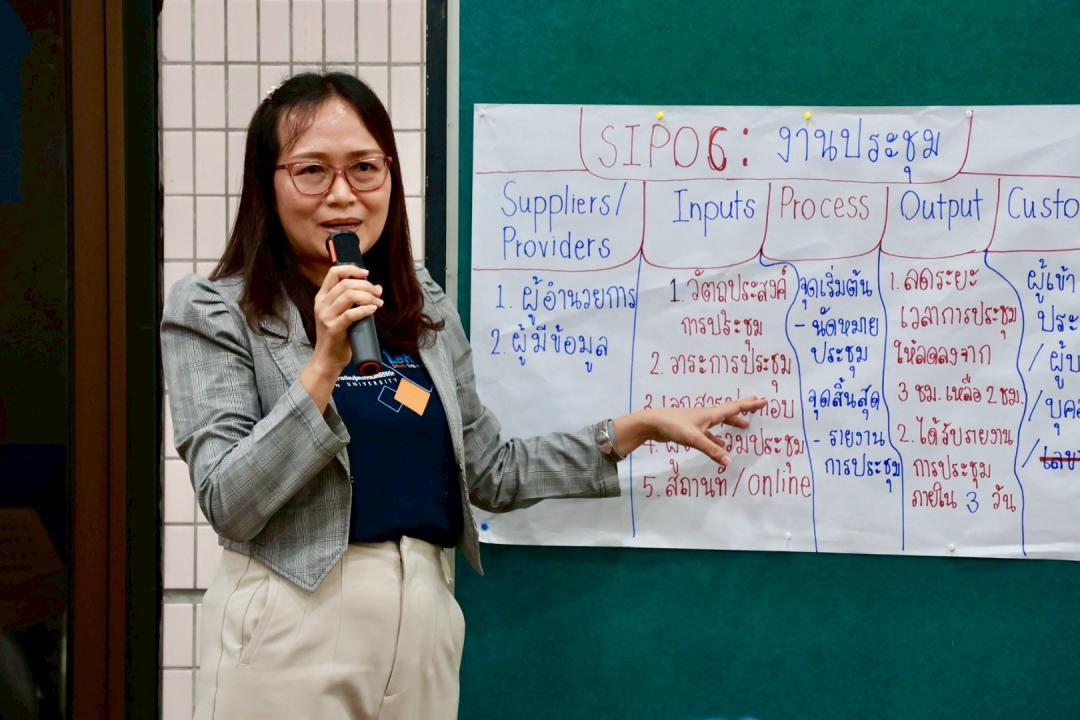 SIPOC: งานประชุม
Suppliers/
Providers
1. ผู้อำนวยการ
2. ผู้มีข้อมูล
Inputs
1. วัตถุประสงค์
การประชุม
2. วาระการประชุม
3. เอกสาร
4.
5. สถานที่/online
Process
จุดเริ่มต้น
- นัดหมาย
ประชุม
จุดสิ้นสุด
- รายงาน
การประชุม
Output
1. ลดระยะ
เวลาการประชุม
ให้ลดลงจาก
3 ชม. เหลือ 2 ชม.
2. ได้รับรายงาน
การประชุม
ภายใน 3 วัน
Custo
ผู้เข้า
ประ
/ ผู้บ
/ บุค
/
UNIVERSITY